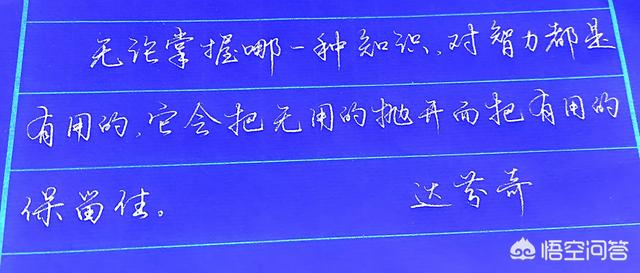 无论掌握哪一种知识、对智力都是
有用的、它会把无用的抛开而把有用的
保留住。 达芬奇
悟空问答